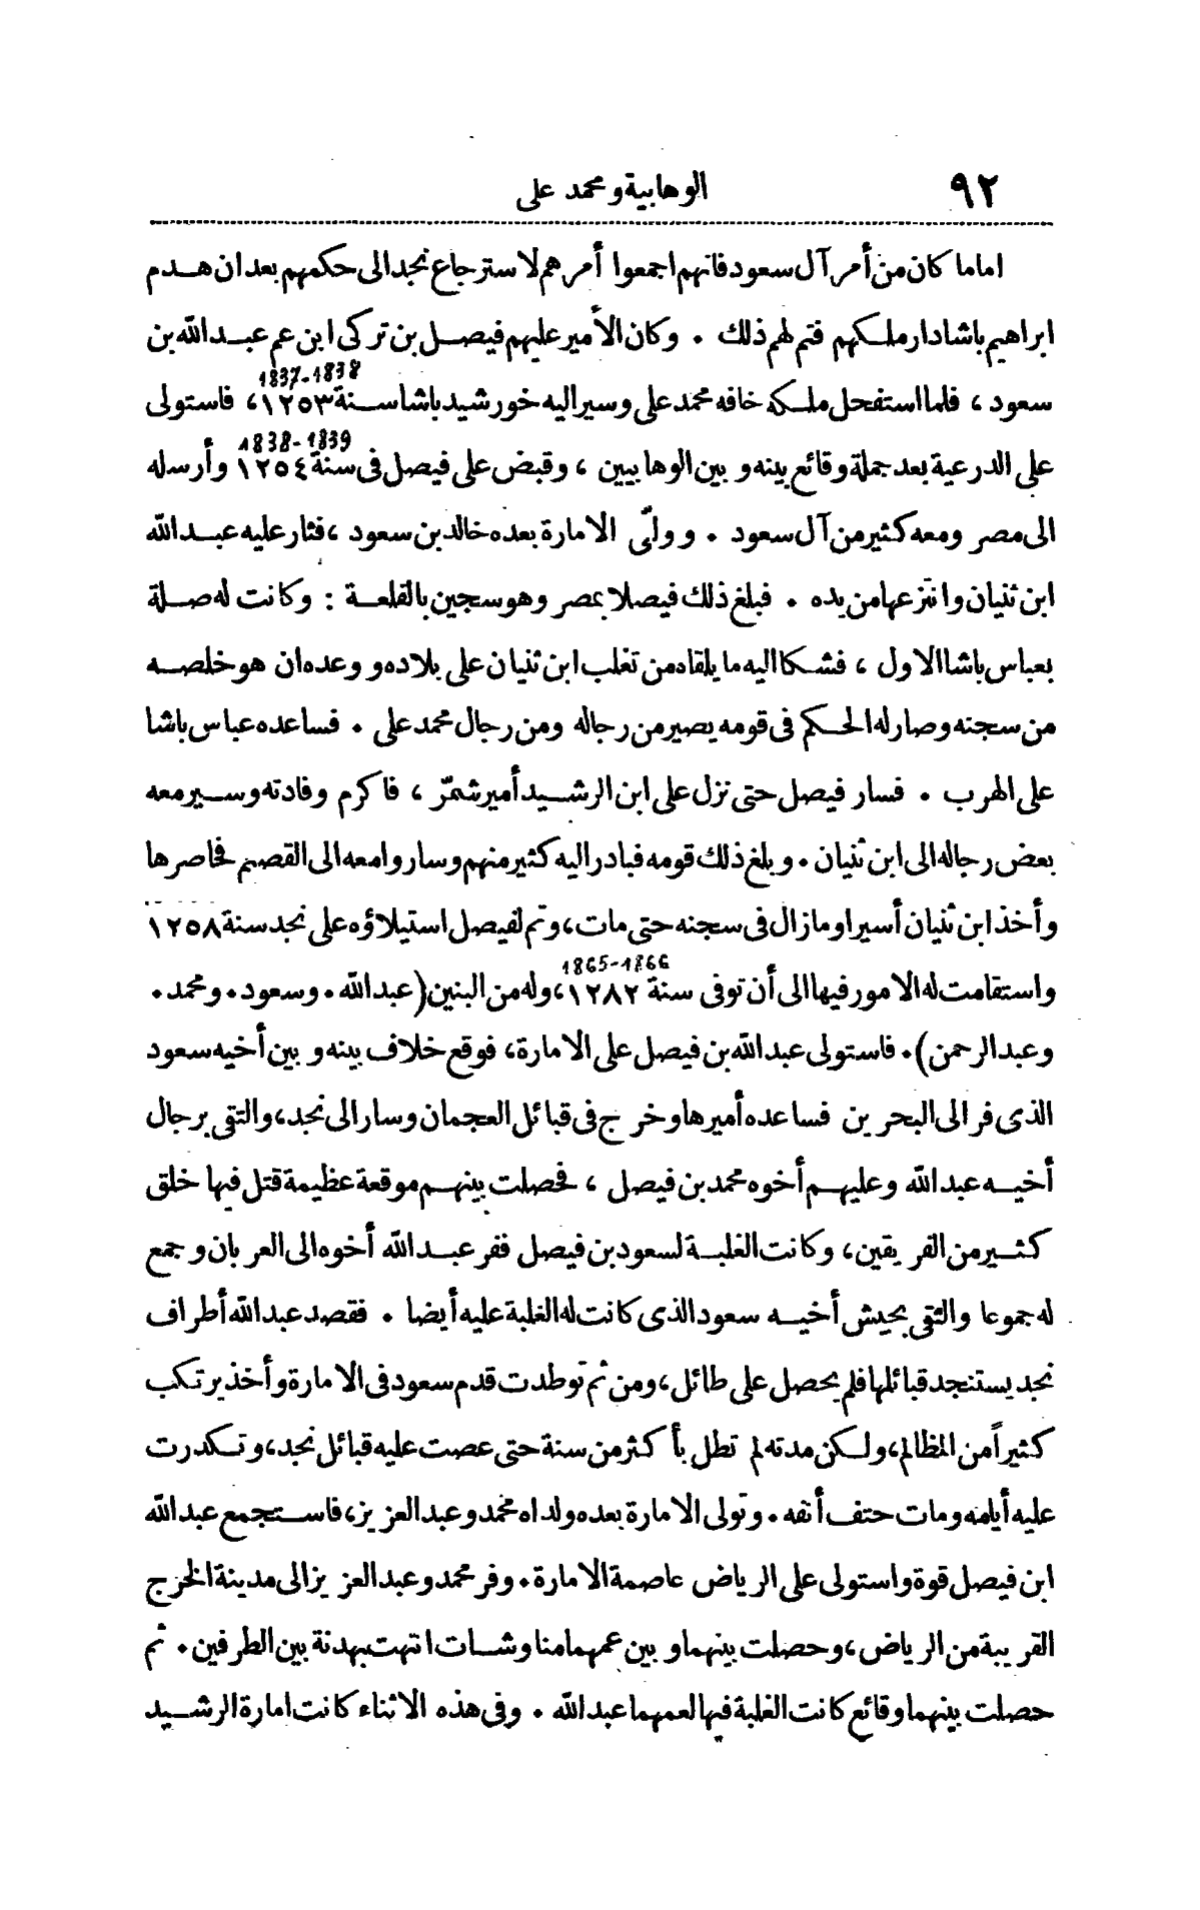 ٩٢
الوهابية ومحمد على
اما ما كان من أمر آل سعود فانهم اجمعوا أمرهم لاسترجاع نجد الى حكمهم بعد ان هدم
ابراهيم باشا دار ملكهم فتم لهم ذلك . وكان الأمير عليهم فيصل بن تركى ابن عم عبد الله بن
1837-1838
سعود ، فلما استفحل ملكه خافه محمد على وسير اليه خورشيد باشا سنة ١٢٥٣، فاستولى
1838-1839
على الدرعية بعد جملة وقائع بينه و بين الوهابيين ، وقبض على فيصل فى سنة ١٢٥٤ وأرسله
الى مصر ومعه كثير من آل سعود . وولّى الامارة بعده خالد بن سعود ، فثار عليه عبد الله
ابن ثنيان وانتزعها من يده . فبلغ ذلك فيصلا بمصر وهو سجين بالقلعة : وكانت له صلة
بعباس باشا الاول ، فشكا اليه ما يلقاه من تغلب ابن ثنيان على بلاده ووعده ان هو خلصه
من سجنه وصار له الحكم فى قومه يصير من رجاله ومن رجال محمد على . فساعده عباس باشا
على الهرب . فسار فيصل حتى نزل على ابن الرشيد أمير شمّر ، فاكرم وفادته وسير معه
بعض رجاله الى ابن ثنيان . و بلغ ذلك قومه فبادر اليه كثير منهم وساروا معه الى القصيم فحاصرها
وأخذ ابن ثنيان أسيرا وما زال فى سجنه حتى مات ، وتم لفيصل استيلاؤه على نجد سنة ١٢٥٨
1865-1866
واستقامت له الامور فيها الى أن توفى سنة ١٢٨٢، وله من البنين (عبد الله . وسعود . ومحمد .
وعبد الرحمن) . فاستولى عبد الله بن فيصل على الامارة ، فوقع خلاف بينه و بين أخيه سعود
الذى فر الى البحرين فساعده أميرها وخرج فى قبائل العجمان وسار الى نجد ، والتقى برجال
أخيه عبد الله وعليهم أخوه محمد بن فيصل ، فحصلت بينهم موقعة عظيمة قتل فيها خلق
كثير من الفريقين ، وكانت الغلبة لسعود بن فيصل ففر عبد الله أخوه الى العربان وجمع
له جموعا والتقى بجيش أخيه سعود الذى كانت له الغلبة عليه أيضا . فقصد عبد الله أطراف
نجد يستنجد قبائلها فلم يحصل على طائل ، ومن ثم توطدت قدم سعود فى الامارة وأخذ يرتكب
كثيراً من المظالم ، ولكن مدته لم تطل بأكثر من سنة حتى عصت عليه قبائل نجد ، وتكدرت
عليه أيامه ومات حتف أنفه . وتولى الامارة بعده ولداه محمد وعبد العزيز ، فاستجمع عبد الله
ابن فيصل قوة واستولى على الرياض عاصمة الامارة . وفر محمد وعبد العزيز الى مدينة الخرج
القريبة من الرياض ، وحصلت بينهما و بين عمهما مناوشات انتهت بهدنة بين الطرفين . ثم
حصلت بينهما وقائع كانت الغلبة فيها لعمهما عبد الله . وفى هذه الاثناء كانت امارة الرشيد